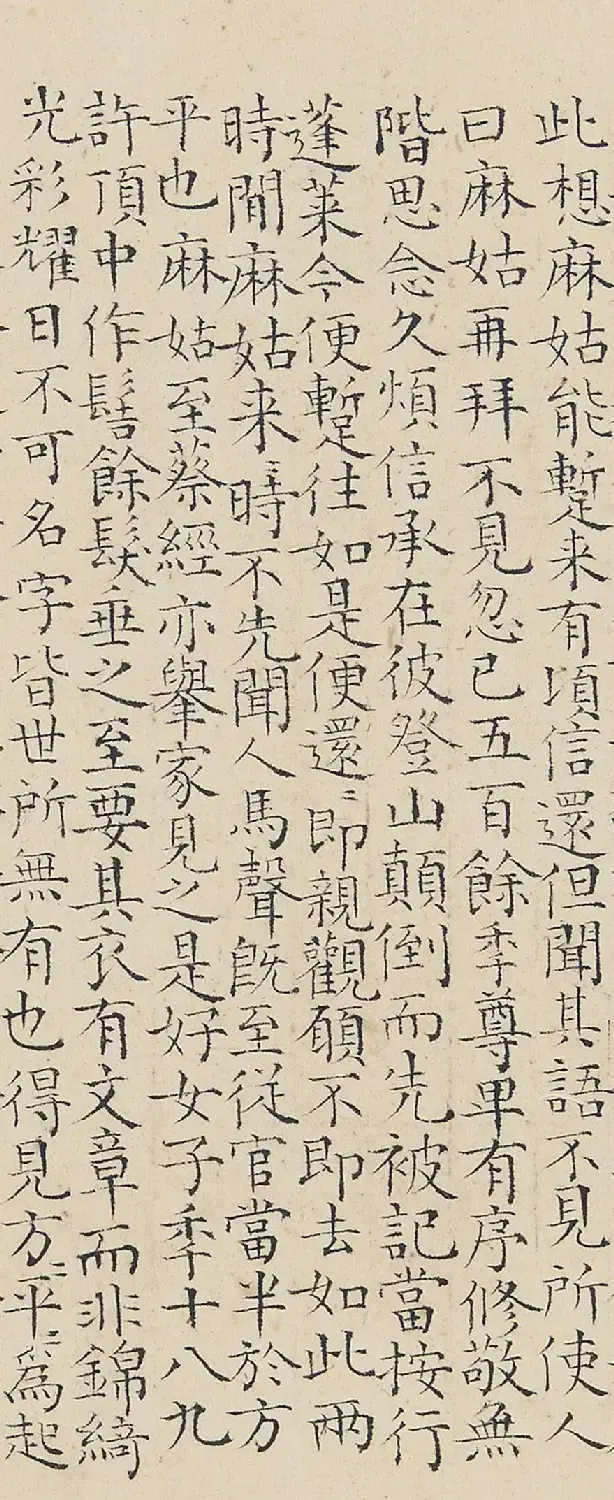 此想麻姑能蹔来有頃信還但聞其語不見所使人
曰麻姑再拜不見忽已五百餘秊尊卑有序修敬無
階思念久煩信承在彼登山顛倒而先被記當按行
蓬莱今便蹔往如是便還〻即親觀願不即去如此兩
時間麻姑来〻時不先聞人馬聲既至從官當半於方
平也麻姑至蔡經亦舉家見之是好女子秊十八九
許頂中作髻餘髮垂之至要其衣有文章而非錦綺
光彩耀日不可名字皆世所無有也得見方〻平〻為起